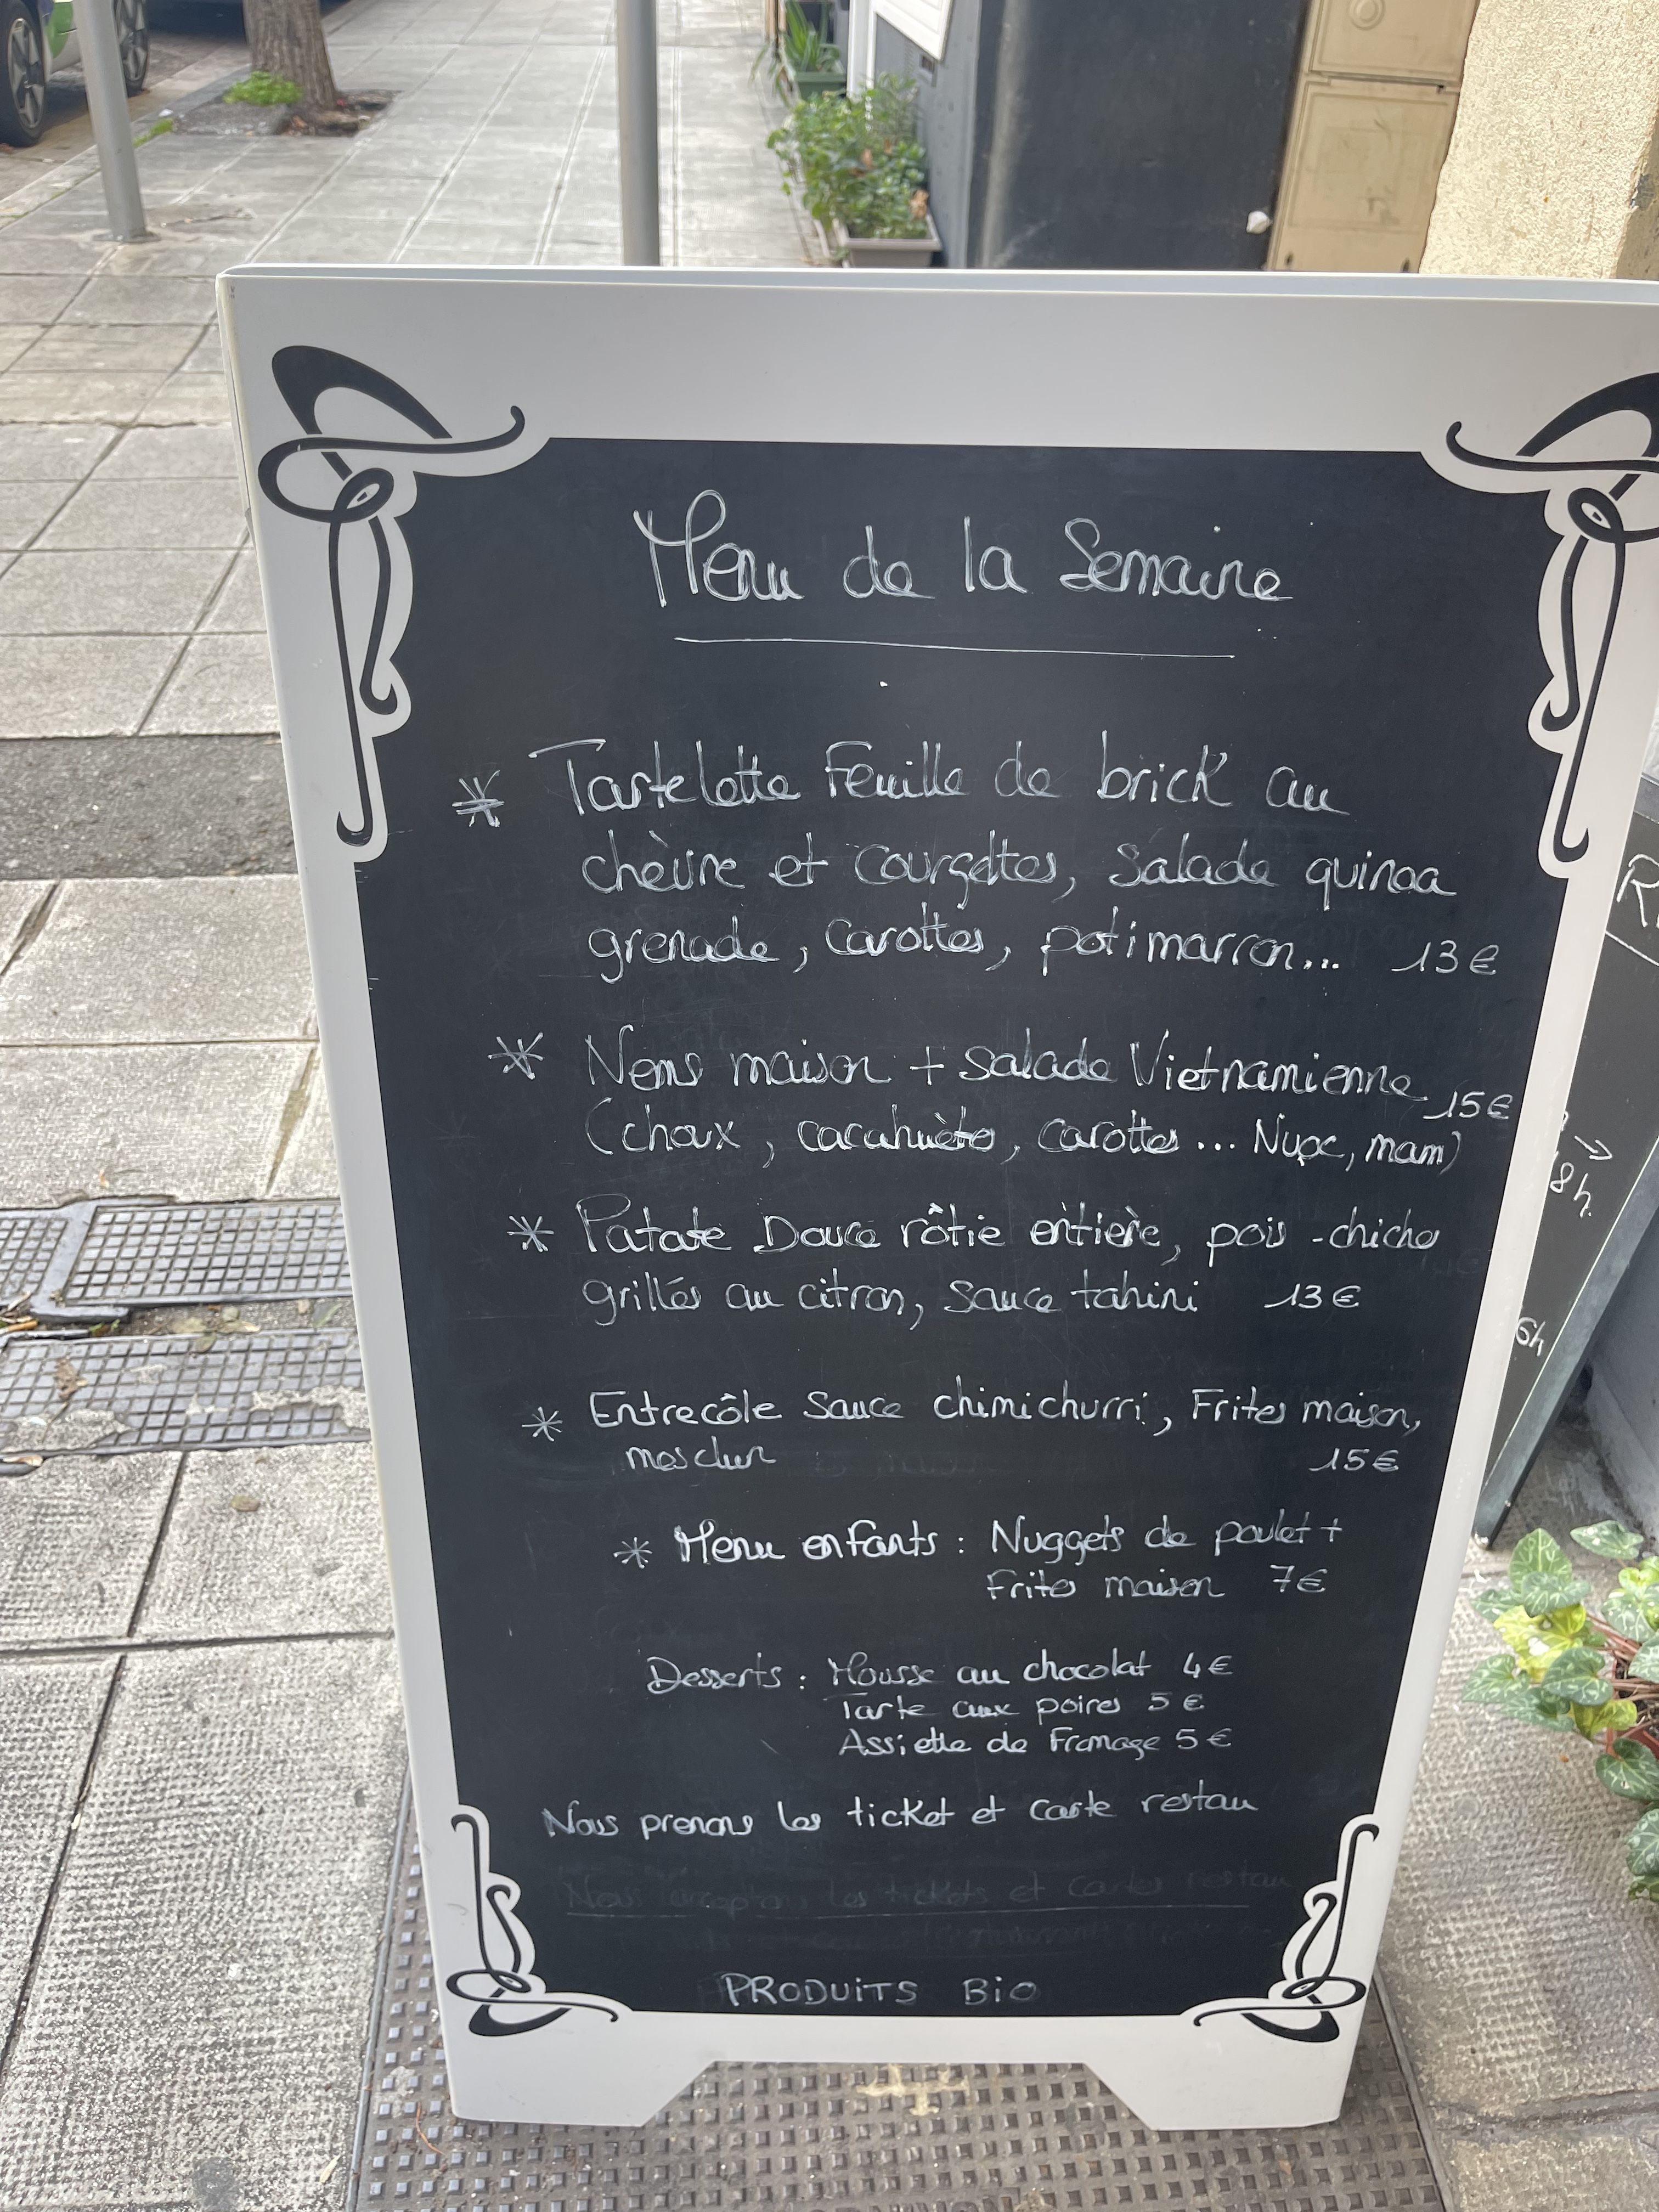 Menu de la Semaine
* Tartelette Feuille de brick au
chèvre et Courgettes, Salade quinoa
grenade, Carottes, potimarron... 13€
* Nems maison + Salade Vietnamienne 15€
(choux, cacahuète, Carottes ... Nuoc, mam)
* Patate Douce rôtie entière, pois-chiche
grillés au citron, Sauce tahini 13€
* Entrecôte Sauce chimichurri, Frites maison,
mesclun 15€
* Menu enfants : Nuggets de poulet +
Frites maison 7€
Desserts : Mousse au chocolat 4€
Tarte aux poires 5€
Assiette de Fromage 5€
Nous prenons les ticket et carte restau
les tickets et Cartes restau
PRODUITS BiO
R
8h.
6h